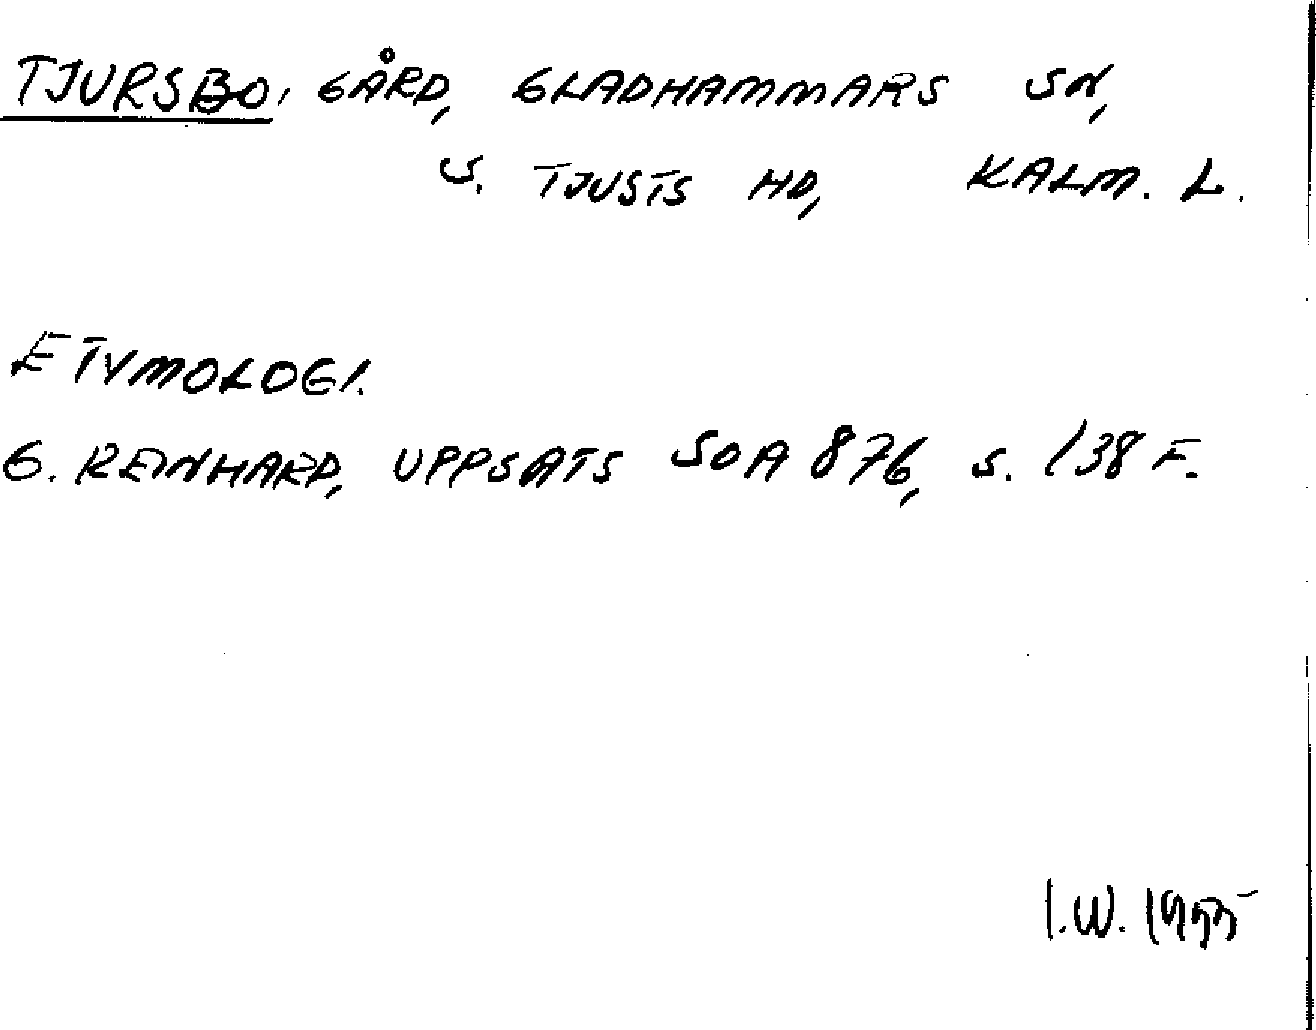 TJURSBO, GÅRD, GLADHAMMARS SN,
S. TJUSTS HD, KALM. L.
ETYMOLOGI.
G. REINHARD, UPPSATS SOA 876, S. 138 F.
I.W.